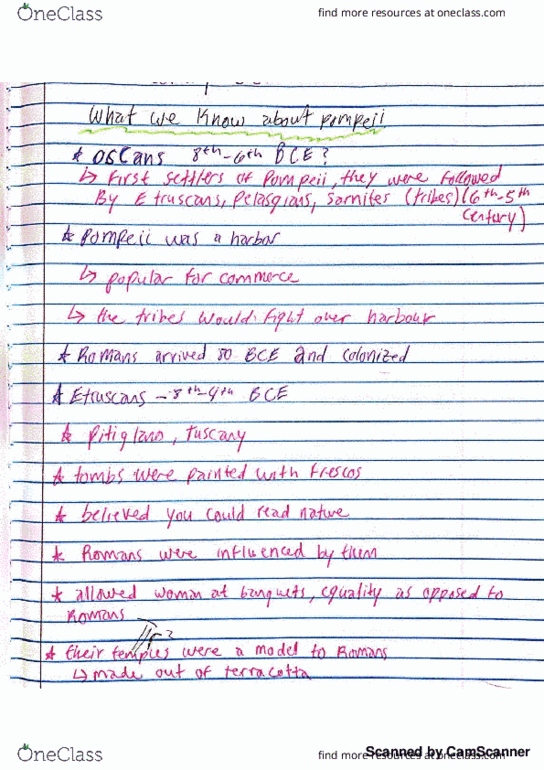 OneClass
find more resources at oneclass.com
What we Know about pompeii
* OSCans 8th-6th BCE?
↳ First settlers of Pompeii, they were followed
By Etruscans, Pelasgians, Samnites (tribes) (6th-5th
Century)
* Pompeii was a harbor
↳ popular for commerce
↳ the tribes would fight over harbour
* Romans arrived 80 BCE and colonized
* Etruscans - 8th-4th BCE
* Pitigliano, Tuscany
* tombs were painted with frescos
* believed you could read nature
* Romans were influenced by them
* allowed woman at banquets, equality as opposed to
Romans
* their temples were a model to Romans
↳ made out of terracotta
OneClass
find more resources at oneclass.com
Scanned by CamScanner